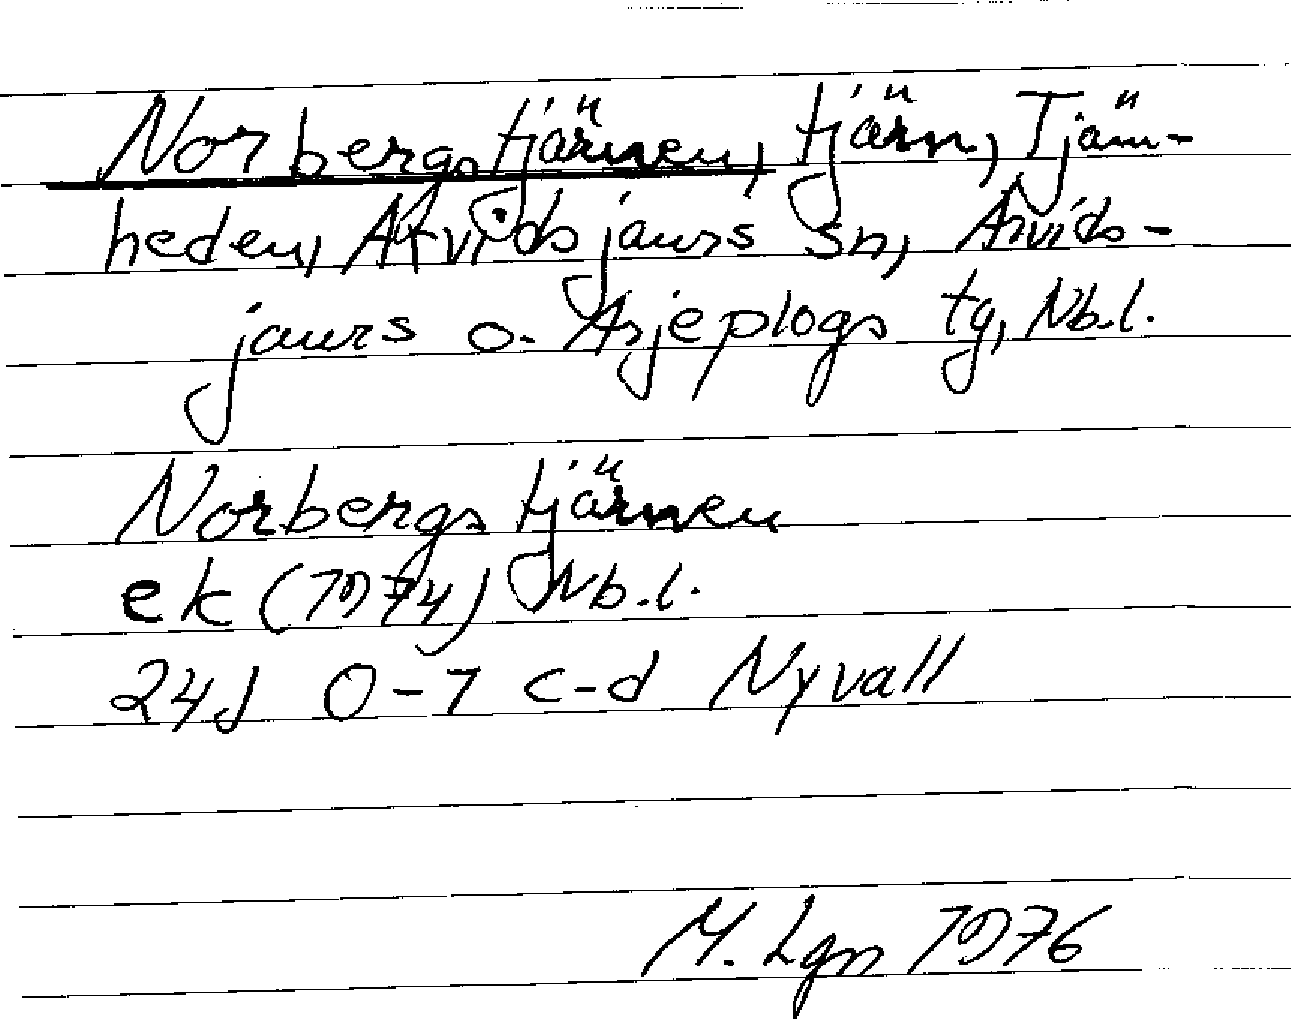 Norbergstjärnen, tjärn, Tjärn-
heden, Arvidsjaurs sn, Arvids-
jaurs o. Arjeplogs tg, Nb.l.
Norbergstjärnen
ek (1974) Nb.l.
24J 0-1 c-d Nyvall
M. Lgn 1976